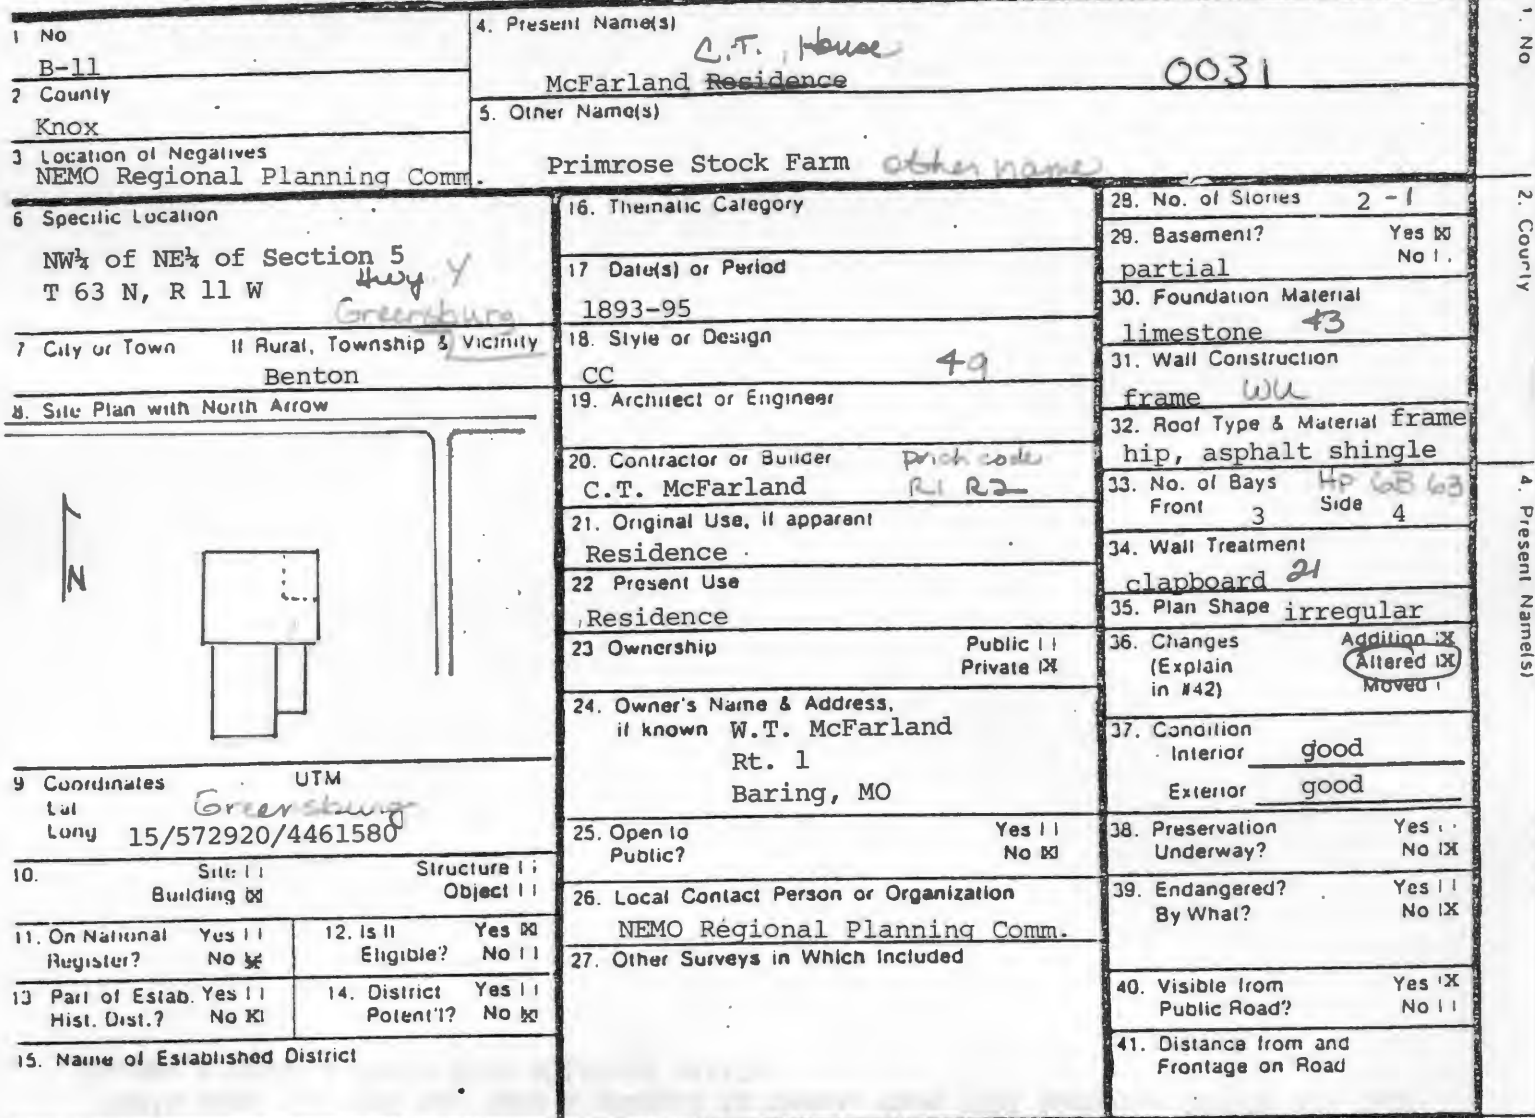 1 No
B-11
2 County
Knox
3 Location of Negatives
NEMO Regional Planning Comm.
4. Present Name(s)
C.T., House
McFarland Residence
0031
5. Other Name(s)
Primrose Stock Farm other name
6 Specific Location
NW¼ of NE¼ of Section 5
T 63 N, R 11 W Hwy. Y
Greensburg
7 City or Town If Rural, Township & Vicinity
Benton
8. Site Plan with North Arrow
N
9 Coordinates UTM
Lat Greensburg
Long 15/572920/4461580
10. Site | | Structure | |
Building |X| Object | |
11. On National Register? Yes | | No |X|
12. Is It Eligible? Yes |X| No | |
13 Part of Estab. Hist. Dist.? Yes | | No |X|
14. District Potent'l? Yes | | No |X|
15. Name of Established District
16. Thematic Category
17 Date(s) or Period
1893-95
18. Style or Design
CC 49
19. Architect or Engineer
20. Contractor or Builder
C.T. McFarland R1 R2
21. Original Use, if apparent
Residence
22 Present Use
Residence
23 Ownership Public | |
Private |X|
24. Owner's Name & Address,
if known W.T. McFarland
Rt. 1
Baring, MO
25. Open to Yes | |
Public? No |X|
26. Local Contact Person or Organization
NEMO Regional Planning Comm.
27. Other Surveys in Which Included
28. No. of Stories 2 - 1
29. Basement? Yes |X|
partial No | |
30. Foundation Material
limestone 43
31. Wall Construction
frame WU
32. Roof Type & Material frame
hip, asphalt shingle
33. No. of Bays HP GB 63
Front 3 Side 4
34. Wall Treatment
clapboard 21
35. Plan Shape irregular
36. Changes Addition |X|
(Explain Altered |X|
in #42) Moved | |
37. Condition
Interior good
Exterior good
38. Preservation Yes | |
Underway? No |X|
39. Endangered? Yes | |
By What? No |X|
40. Visible from Yes |X|
Public Road? No | |
41. Distance from and
Frontage on Road
1. No
2. County
4. Present Name(s)